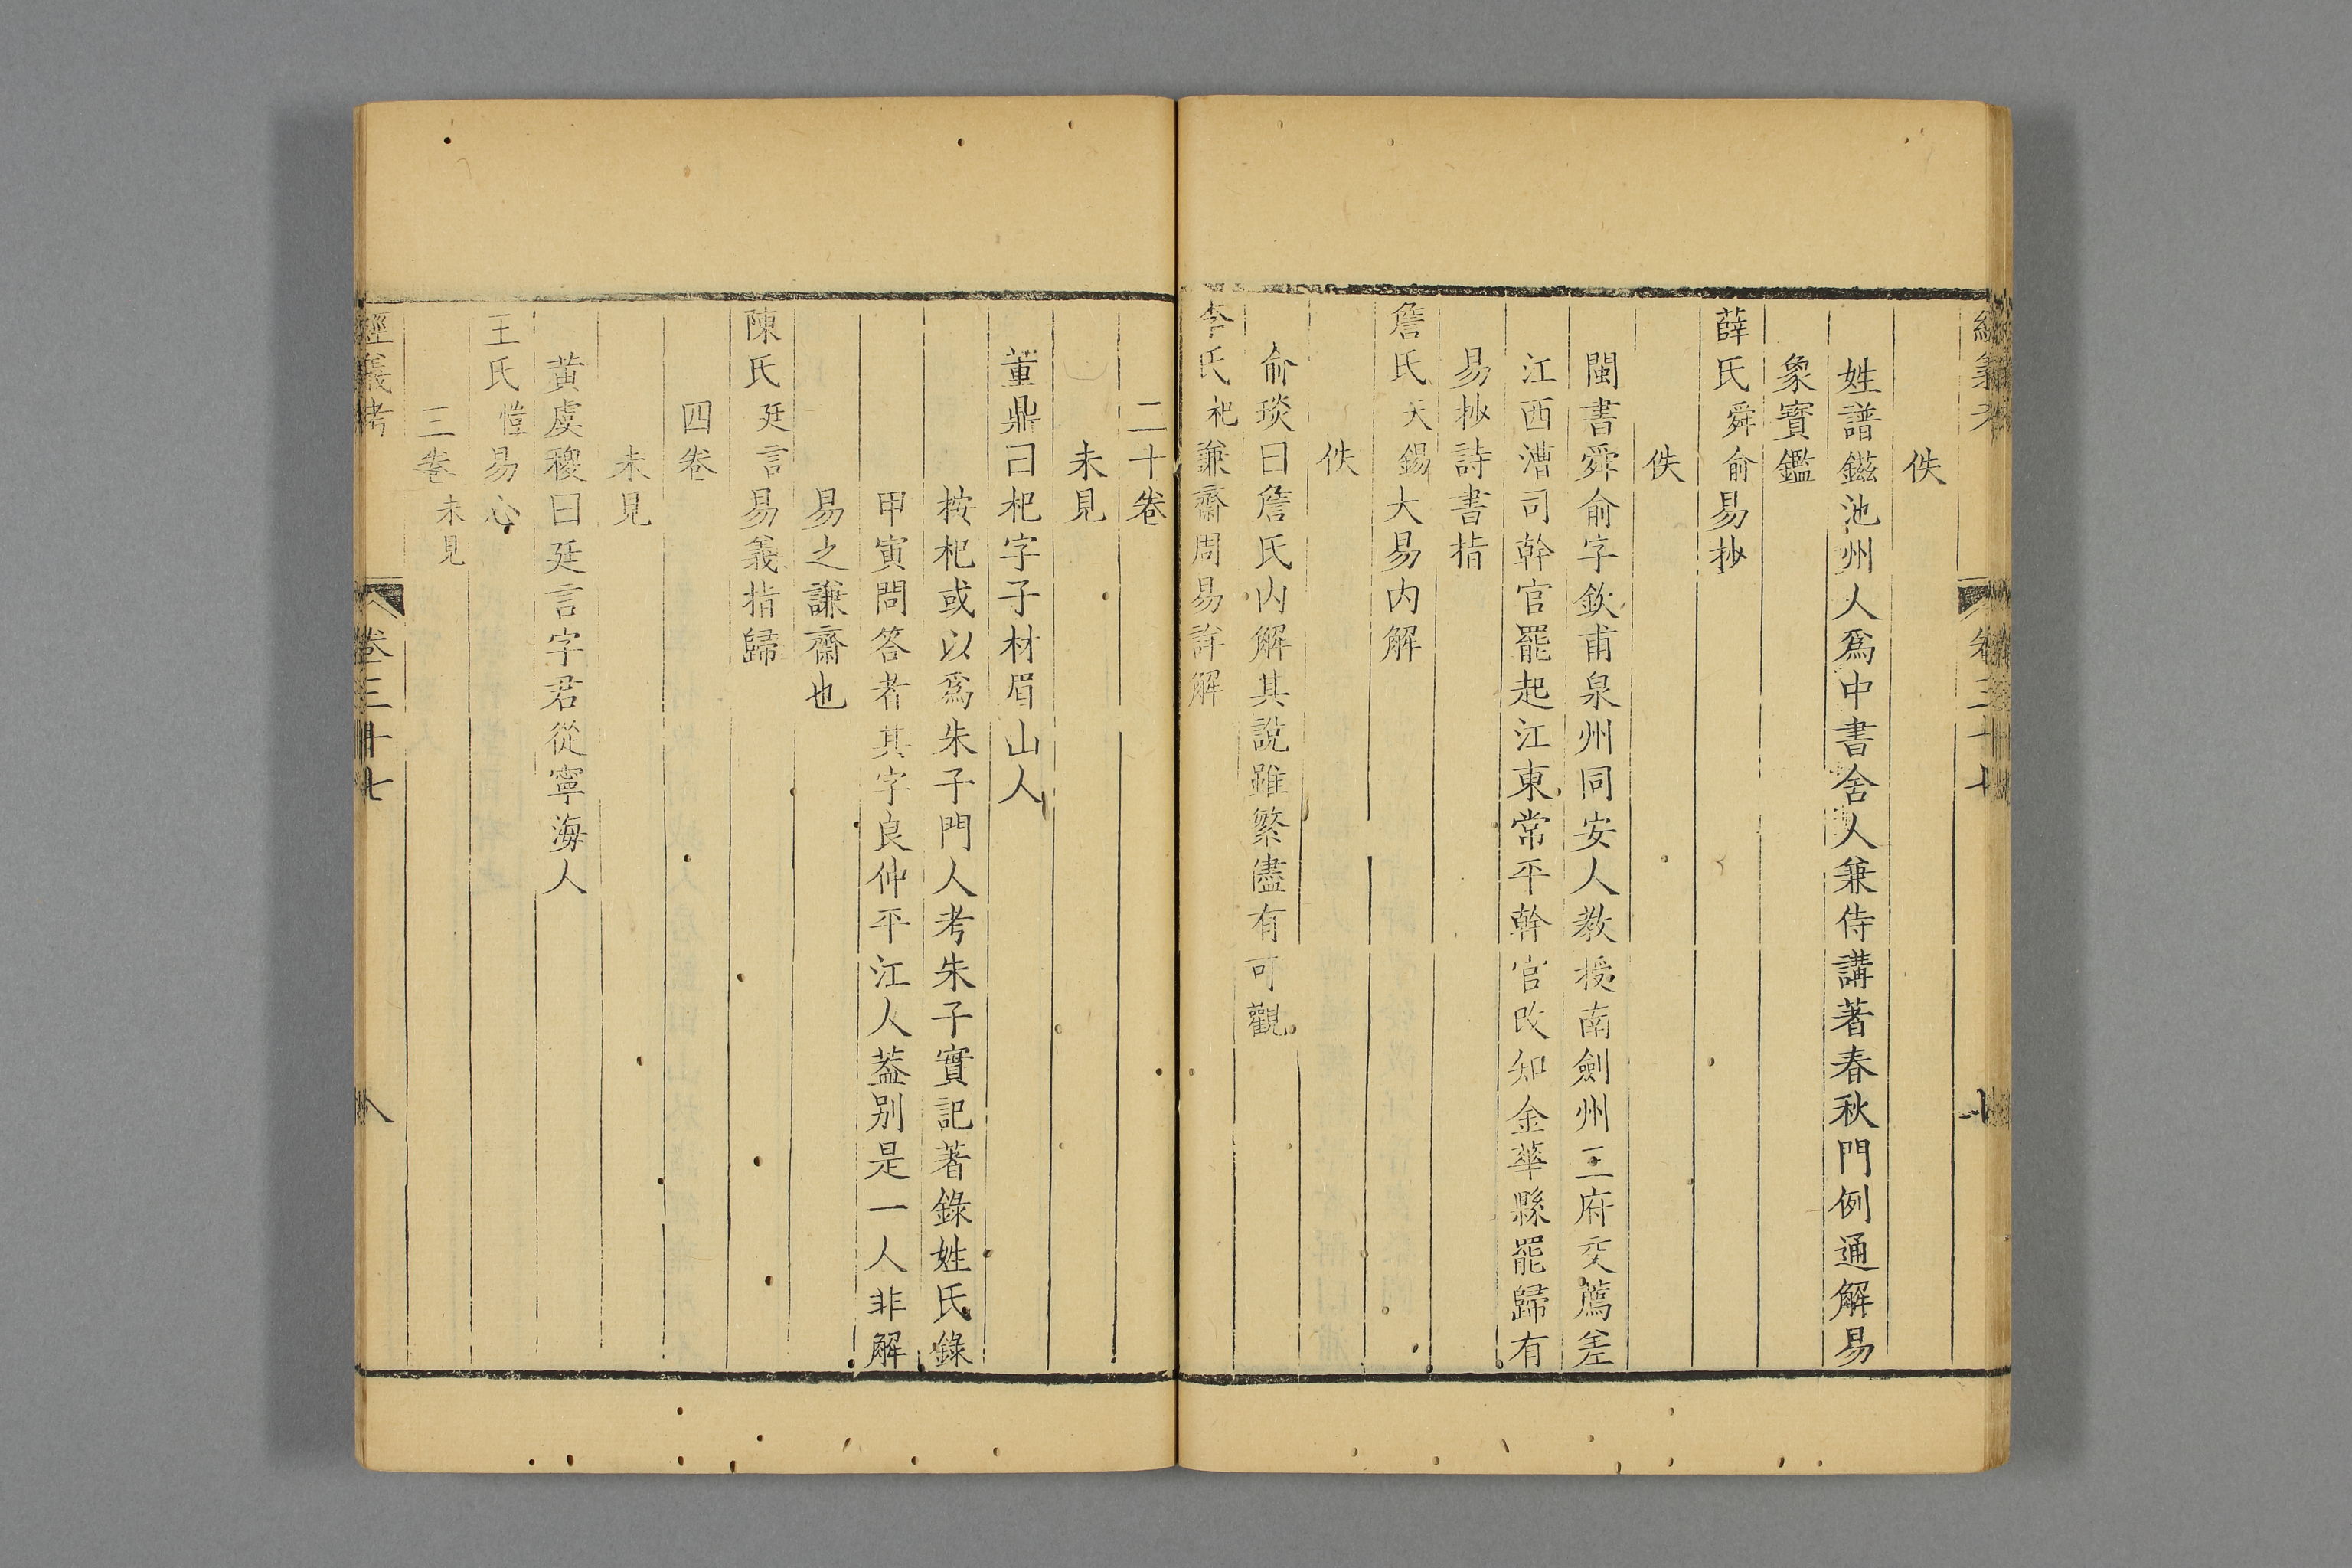 佚
姓譜鎡池州人爲中書舍人兼侍講著春秋門例通解易
象寶鑑
薛氏舜俞易抄
佚
閩書舜俞字欽甫泉州同安人教授南劍州三府交薦差
江西漕司幹官罷起江東常平幹官改知金華縣罷歸有
易抄詩書指
詹氏天錫大易内解
佚
俞琰曰詹氏内解其説雖繁儘有可觀
李氏杞謙齋周易詳解
二十卷
未見
董鼎曰杞字子材眉山人
按杞或以爲朱子門人考朱子實記著錄姓氏錄
甲寅問答者其字良仲平江人葢别是一人非解
易之謙齋也
陳氏廷言易義指歸
四卷
未見
黃虞稷曰廷言字君從寧海人
王氏愷易心
三卷未見
經義考 卷三十七 八